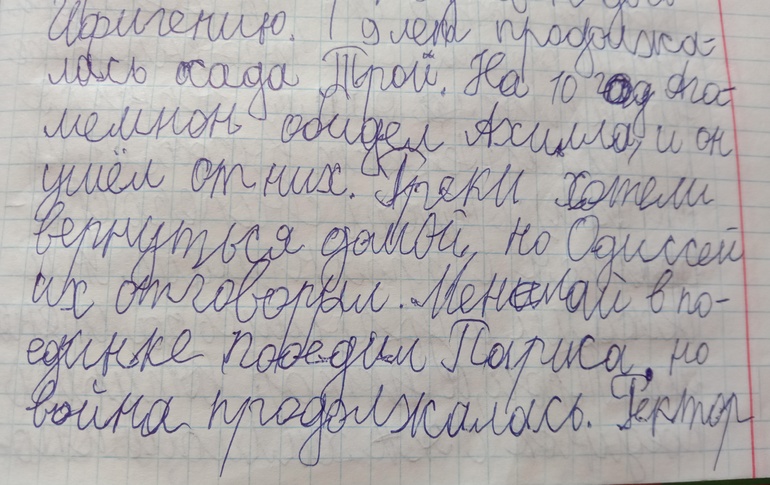 Ифигению. 9 лет продолжа-
лась осада Трой. На 10 год Ага-
мемнон обидел Ахилла, и он
ушёл от них. Греки хотели
вернуться домой, но Одиссей
их отговорил. Менелай в по-
единке победил Париса, но
война продолжалась. Гектор